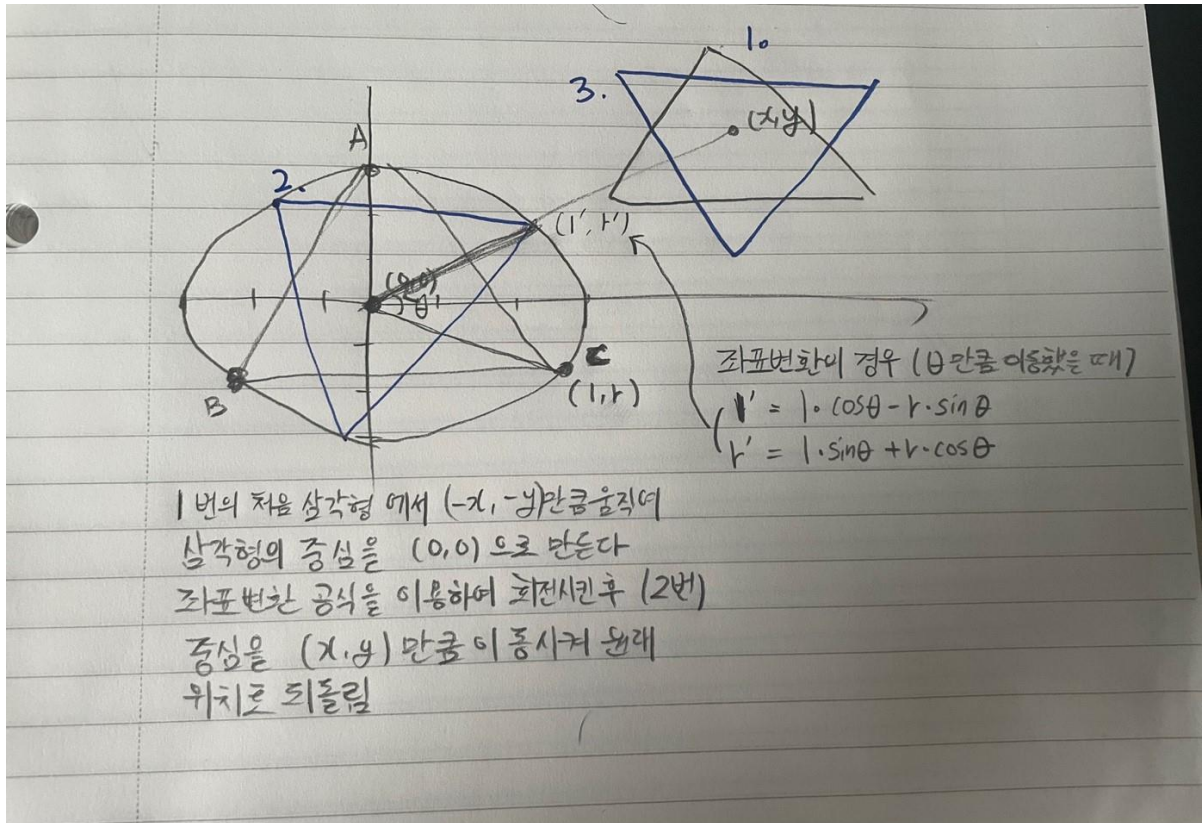 1.
3.
(x,y)
A
2.
(1', r')
(0,0)
θ
C
(1, r)
B
좌표변환이 경우 (θ만큼 이동했을 때)
1' = 1·cosθ - r·sinθ
r' = 1·sinθ + r·cosθ
1번의 처음 삼각형에서 (-x, -y)만큼 움직여
삼각형의 중심을 (0,0)으로 만든다
좌표변환 공식을 이용하여 회전시킨후 (2번)
중심을 (x,y)만큼 이동시켜 원래
위치로 되돌림